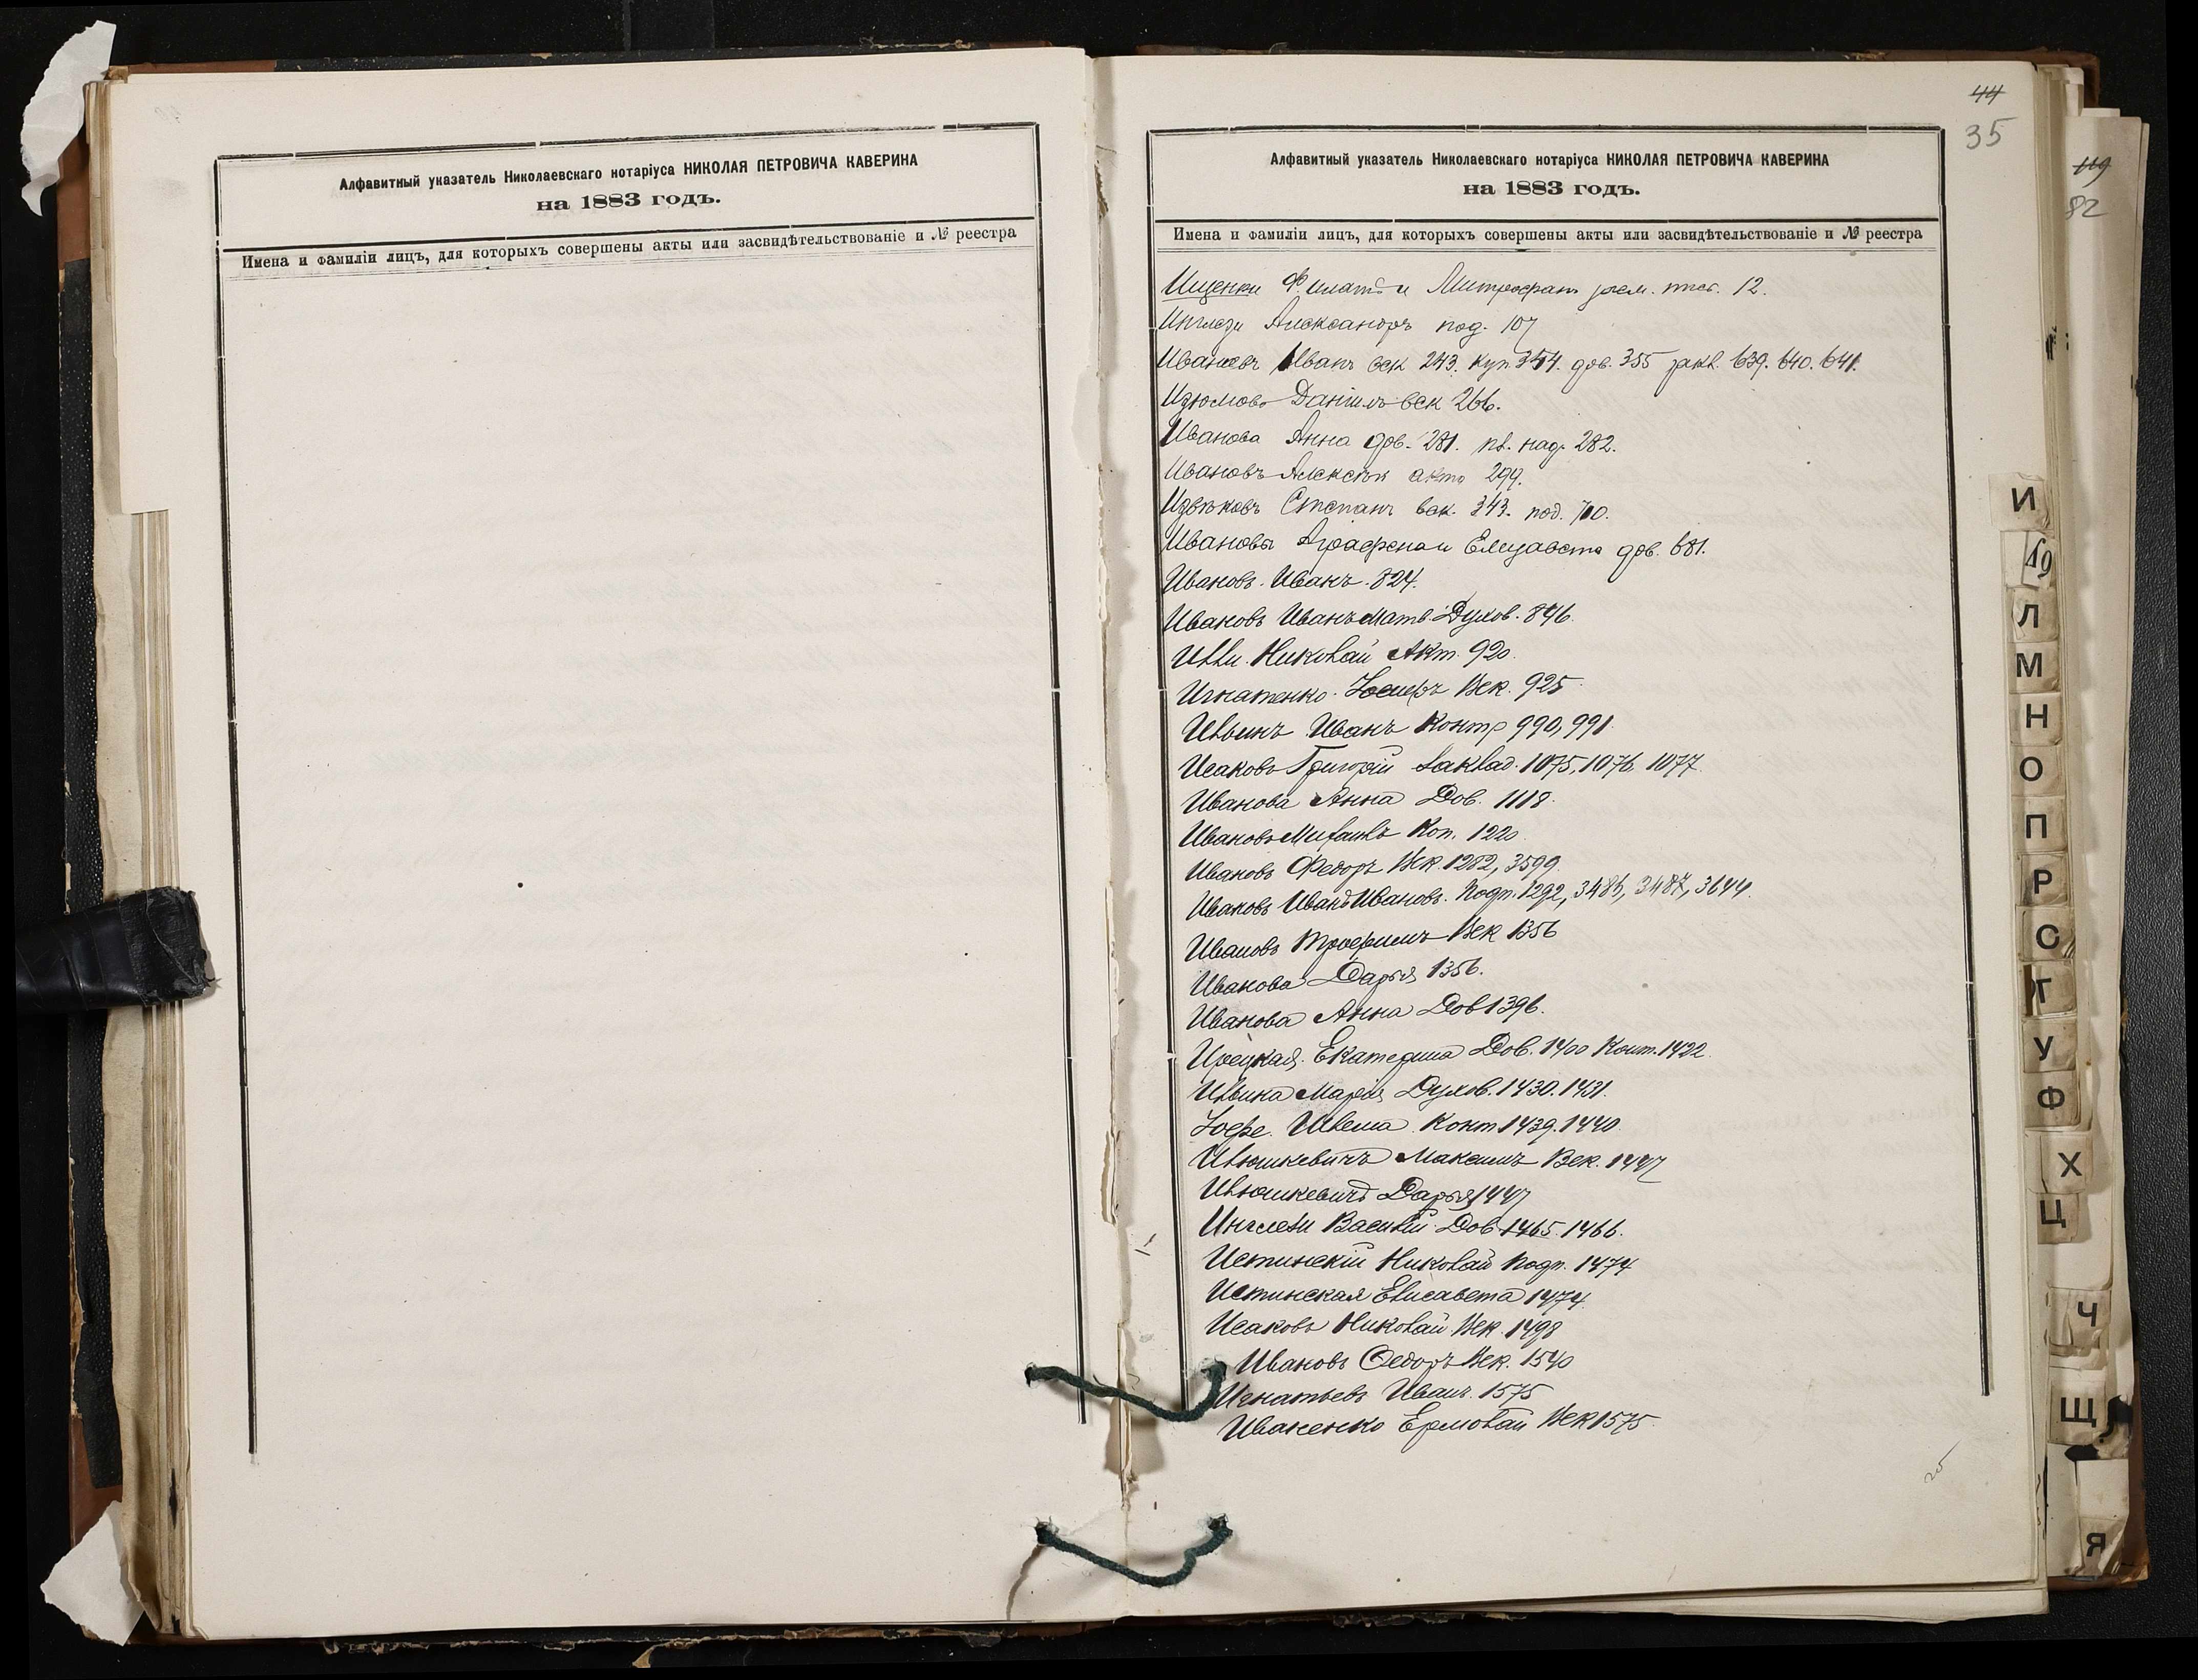 Алфавитный указатель Николаевскаго нотаріуса НИКОЛАЯ ПЕТРОВИЧА КАВЕРИНА
на 1883 годъ.
Имена и фамиліи лицъ, для которыхъ совершены акты или засвидѣтельствованіе и № реестра
44
35
Алфавитный указатель Николаевскаго нотаріуса НИКОЛАЯ ПЕТРОВИЧА КАВЕРИНА
на 1883 годъ.
Имена и фамиліи лицъ, для которыхъ совершены акты или засвидѣтельствованіе и № реестра
Ищенки Филатъ и Митрофанъ 12.
Инглези Александръ под. 107
Иванъ век 243. куп. 354. дов. 355 639. 640. 641.
Изюмовъ Даніилъ век 266.
Иванова Анна дов. 281. над. 282.
Ивановъ Алексѣй актъ 299.
Извѣковъ Степанъ век. 343. под. 710.
Ивановы Аграфена и Елизавета дов. 681.
Ивановъ Иванъ 824.
Ивановъ Иванъ Матв. Духов. 846.
Николай Акт. 920.
Игнатенко Век. 925
Ильинъ Иванъ Контр 990, 991.
Исаковъ Григорій Заклад. 1075, 1076, 1077.
Иванова Анна Дов. 1118.
Ивановъ Михаилъ Коп. 1220.
Ивановъ Федоръ Век. 1282, 3599.
Ивановъ Иванъ Ивановъ. Подп. 1292, 3485, 3487, 3644.
Ивановъ Трофимъ Век 1356
Иванова Дарья 1356.
Иванова Анна Дов 1396.
Ирецкая Екатерина Дов. 1400 Конт. 1422.
Ильина Марія Духов. 1430. 1431.
Іоффе Конт 1439. 1440.
Илюшкевичъ Максимъ Век. 1447
Илюшкевичъ Дарья 1447
Инглези Василій Дов. 1465. 1466.
Истинскій Николай Подп. 1474
Истинская Елисавета 1474.
Исаковъ Николай Век. 1498
Ивановъ Ѳедоръ Век. 1540
Игнатьевъ Иванъ. 1575
Иваненко Ермолай Век 1575
119
82
И
Л
М
Н
О
П
Р
С
Т
У
Ф
Х
Ц
Ч
Щ
Я